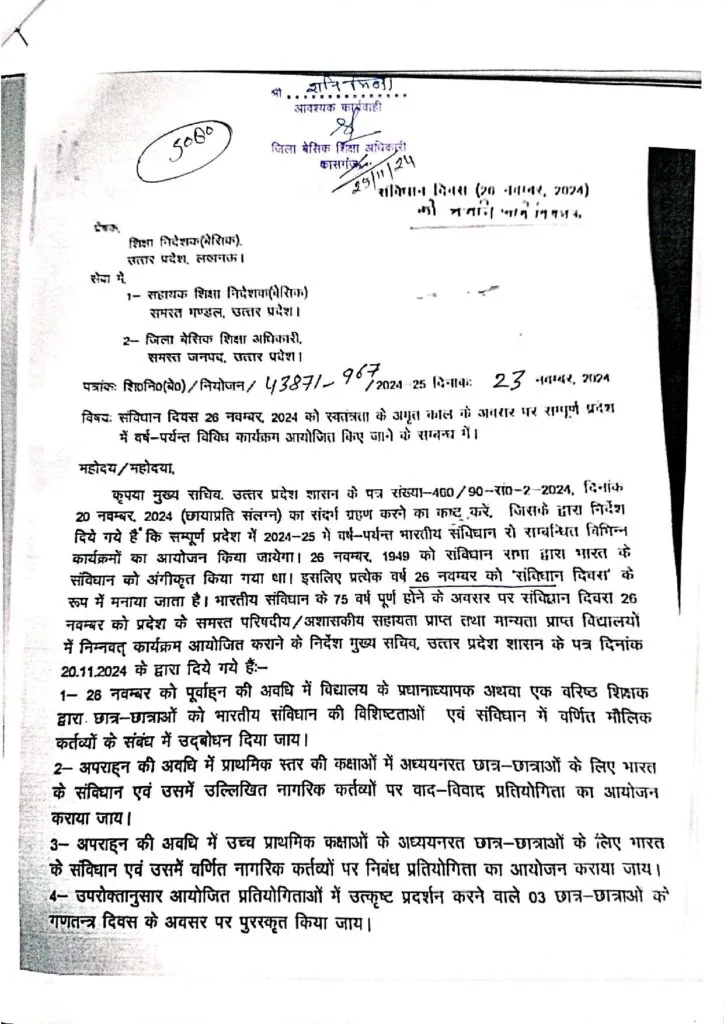 श्री
आवश्यक कार्यवाही
जिला बेसिक शिक्षा अधिकारी
कासगंज
25/11/24
5000
संविधान दिवस (26 नवम्बर, 2024)
प्रेषक,
शिक्षा निदेशक(बेसिक),
उत्तर प्रदेश, लखनऊ।
सेवा में,
1- सहायक शिक्षा निदेशक(बेसिक)
समस्त मण्डल, उत्तर प्रदेश।
2- जिला बेसिक शिक्षा अधिकारी,
समस्त जनपद, उत्तर प्रदेश।
पत्रांकः शि0नि0(बे0)/नियोजन/43871-967/2024-25 दिनांकः 23 नवम्बर, 2024
विषयः संविधान दिवस 26 नवम्बर, 2024 को स्वतंत्रता के अमृत काल के अवसर पर सम्पूर्ण प्रदेश
में वर्ष-पर्यन्त विविध कार्यक्रम आयोजित किए जाने के सम्बन्ध में।
महोदय/महोदया,
कृपया मुख्य सचिव, उत्तर प्रदेश शासन के पत्र संख्या-460/90-सा0-2-2024, दिनांक
20 नवम्बर, 2024 (छायाप्रति संलग्न) का संदर्भ ग्रहण करने का कष्ट करें, जिसके द्वारा निर्देश
दिये गये है कि सम्पूर्ण प्रदेश में 2024-25 मे वर्ष-पर्यन्त भारतीय संविधान से सम्बन्धित विभिन्न
कार्यक्रमों का आयोजन किया जायेगा। 26 नवम्बर, 1949 को संविधान सभा द्वारा भारत के
संविधान को अंगीकृत किया गया था। इसलिए प्रत्येक वर्ष 26 नवम्बर को 'संविधान दिवस' के
रूप में मनाया जाता है। भारतीय संविधान के 75 वर्ष पूर्ण होने के अवसर पर संविधान दिवस 26
नवम्बर को प्रदेश के समस्त परिषदीय/अशासकीय सहायता प्राप्त तथा मान्यता प्राप्त विद्यालयों
में निम्नवत् कार्यक्रम आयोजित कराने के निर्देश मुख्य सचिव, उत्तर प्रदेश शासन के पत्र दिनांक
20.11.2024 के द्वारा दिये गये हैं:-
1- 26 नवम्बर को पूर्वाहन की अवधि में विद्यालय के प्रधानाध्यापक अथवा एक वरिष्ठ शिक्षक
द्वारा छात्र-छात्राओं को भारतीय संविधान की विशिष्टताओं एवं संविधान में वर्णित मौलिक
कर्तव्यों के संबंध में उद्बोधन दिया जाय।
2- अपराहन की अवधि में प्राथमिक स्तर की कक्षाओं में अध्ययनरत छात्र-छात्राओं के लिए भारत
के संविधान एवं उसमें उल्लिखित नागरिक कर्तव्यों पर वाद-विवाद प्रतियोगिता का आयोजन
कराया जाय।
3- अपराहन की अवधि में उच्च प्राथमिक कक्षाओं के अध्ययनरत छात्र-छात्राओं के लिए भारत
के संविधान एवं उसमें वर्णित नागरिक कर्तव्यों पर निबंध प्रतियोगिता का आयोजन कराया जाय।
4- उपरोक्तानुसार आयोजित प्रतियोगिताओं में उत्कृष्ट प्रदर्शन करने वाले 03 छात्र-छात्राओं को
गणतन्त्र दिवस के अवसर पर पुरस्कृत किया जाय।